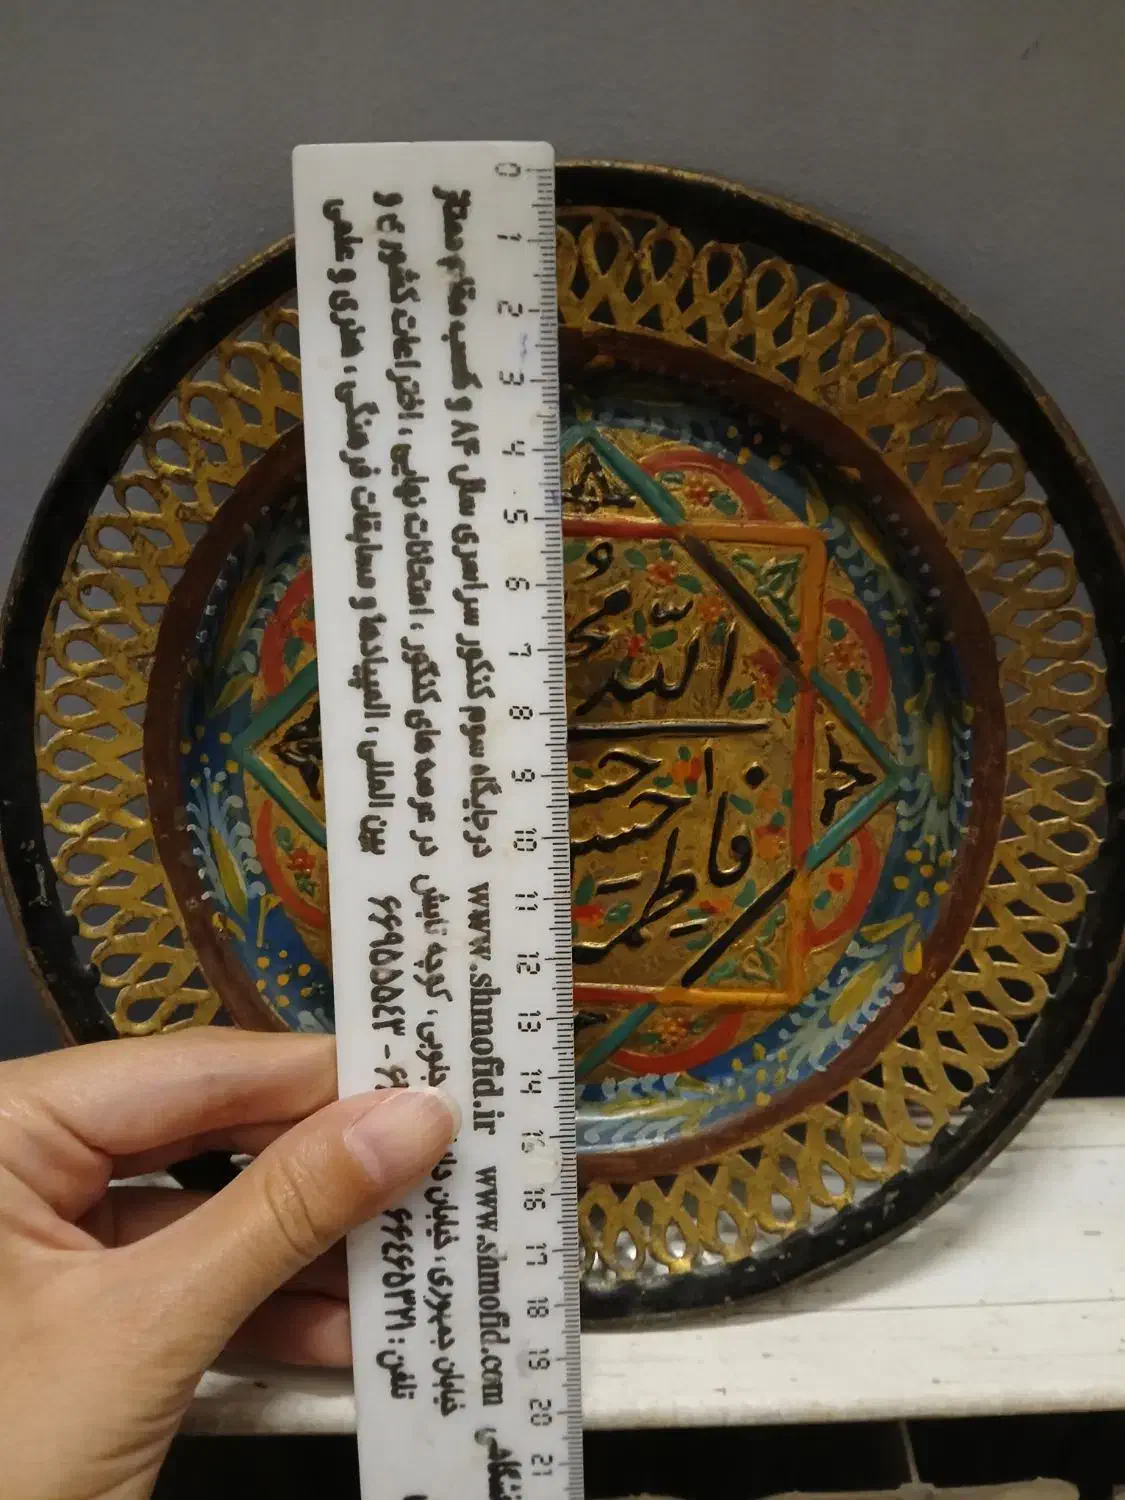 0 1 2 3 4 5 6 7 8 9 10 11 12 13 14 15 16 17 18 19 20 21
در جایگاه سوم کنکور سراسری سال ۸۴ و کسب مقام ممتاز
در عرصه های کنکور ، امتحانات نهایی ، اختراعات کشوری و
بین المللی ، المپیادها و مسابقات فرهنگی ، هنری و علمی
www.shmofid.ir www.shmofid.com
خیابان جمهوری ، خیابان جنوبی ، کوچه تابش
تلفن : ۶۶۴۶۵۳۷۱ - ۶۶۹۵۵۵۴۳
الله
فاطمه